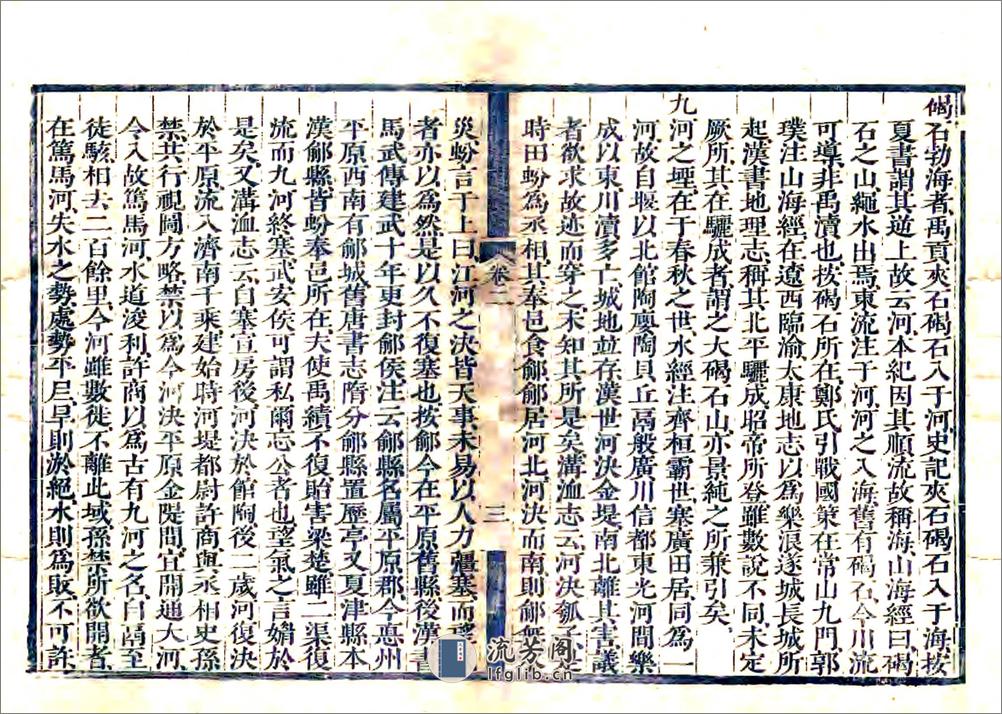 碣石勃海者禹貢夾石碣石入于河史記夾石碣石入于海按
夏書謂其逆上故云河本紀因其順流故稱海山海經曰碣
石之山繩水出焉東流注于河河之入海舊有碣石今川流
可導非禹瀆也按碣石所在鄭氏引戰國策在常山九門郭
璞注山海經在遼西臨渝太康地志以為樂浪遂城長城所
起漢書地理志稱其北平驪成昭帝所登雖數說不同未定
厥所其在驪成者謂之大碣石山亦景純之所兼引矣
九河之堙在于春秋之世水經注齊桓霸世塞廣田居同為一
河故自堰以北館陶廮陶貝丘鬲般廣川信都東光河間樂
成以東川瀆多亡城地並存漢世河決金堤南北離其害議
者欲求故迹而穿之未知其所是矣溝洫志云河決瓠子
時田蚡為丞相其奉邑食鄃鄃居河北河決而南則鄃無
卷二
三
災蚡言于上曰江河之決皆天事未易以人力彊塞而望
者亦以為然是以久不復塞也按鄃今在平原舊縣後漢書
馬武傳建武十年更封鄃侯注云鄃縣名屬平原郡今惪州
平原西南有鄃城舊唐書志隋分鄃縣置歷亭又夏津縣本
漢鄃縣皆蚡奉邑所在夫使禹績不復貽害梁楚雖二渠復
流而九河終塞武安侯可謂私爾忘公者也望氣之言媋於
是矣又溝洫志云自塞宣房後河決於館陶後二歲河復決
於平原流入濟南千乘建始時河堤都尉許商與丞相史孫
禁共行視圖方略禁以為今河決平原金隄間宜開通大河
令入故篤馬河水道浚利許商以為古有九河之名自鬲至
徒駭相去二百餘里今河雖數徙不離此域孫禁所欲開者
在篤馬河失水之勢處勢平㞋旱則淤絕水則為敗不可許
流芳阁
lfglib.cn